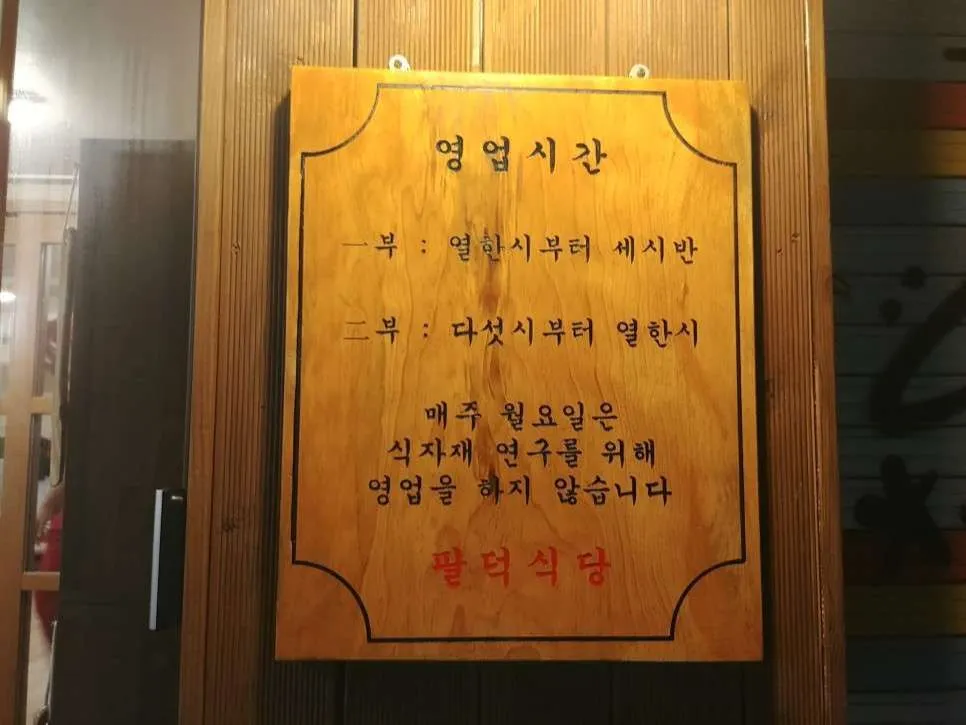 영업시간
一부 : 열한시부터 세시반
二부 : 다섯시부터 열한시
매주 월요일은
식자재 연구를 위해
영업을 하지 않습니다
팔덕식당